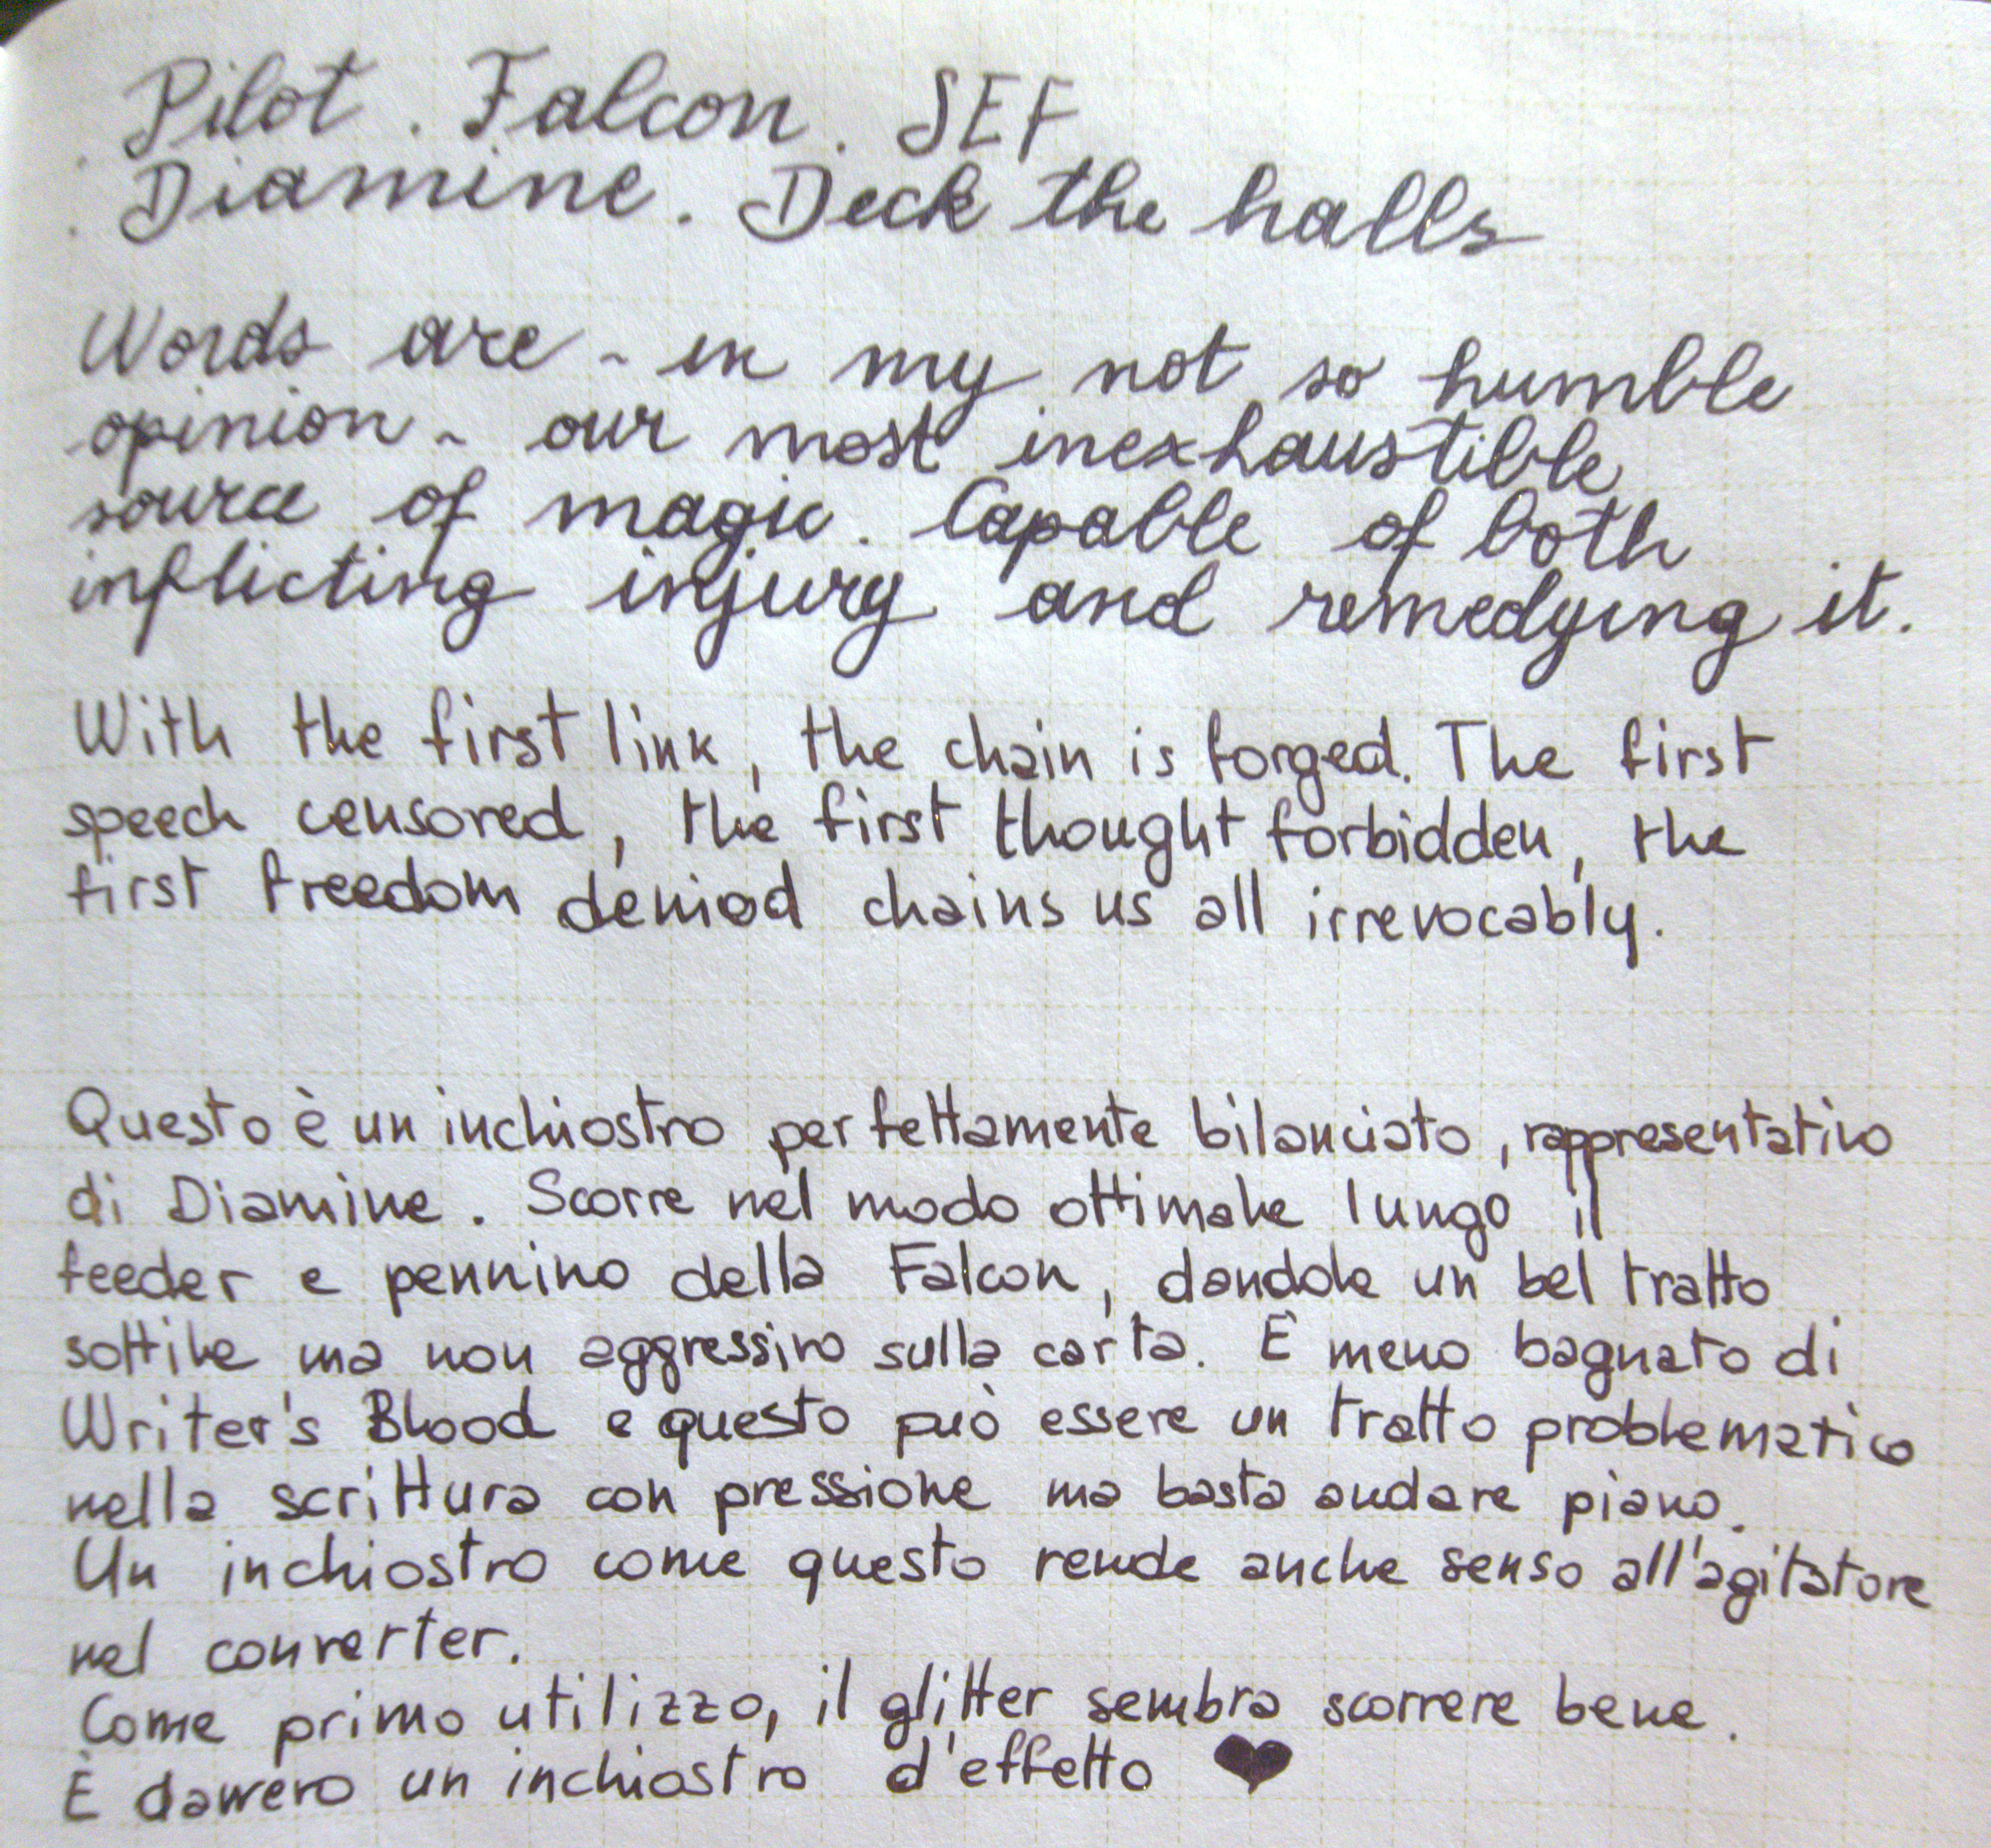 . Pilot . Falcon . SEF
. Diamine . Deck the halls
Words are - in my not so humble
opinion - our most inexhaustible
source of magic. Capable of both
inflicting injury and remedying it.
With the first link, the chain is forged. The first
speech censored, the first thought forbidden, the
first freedom denied chains us all irrevocably.
Questo è un inchiostro perfettamente bilanciato, rappresentativo
di Diamine. Scorre nel modo ottimale lungo il
feeder e pennino della Falcon, dandole un bel tratto
sottile ma non aggressivo sulla carta. È meno bagnato di
Writer's Blood e questo può essere un tratto problematico
nella scrittura con pressione ma basta andare piano.
Un inchiostro come questo rende anche senso all'agitatore
nel converter.
Come primo utilizzo, il glitter sembra scorrere bene.
È davvero un inchiostro d'effetto ♥